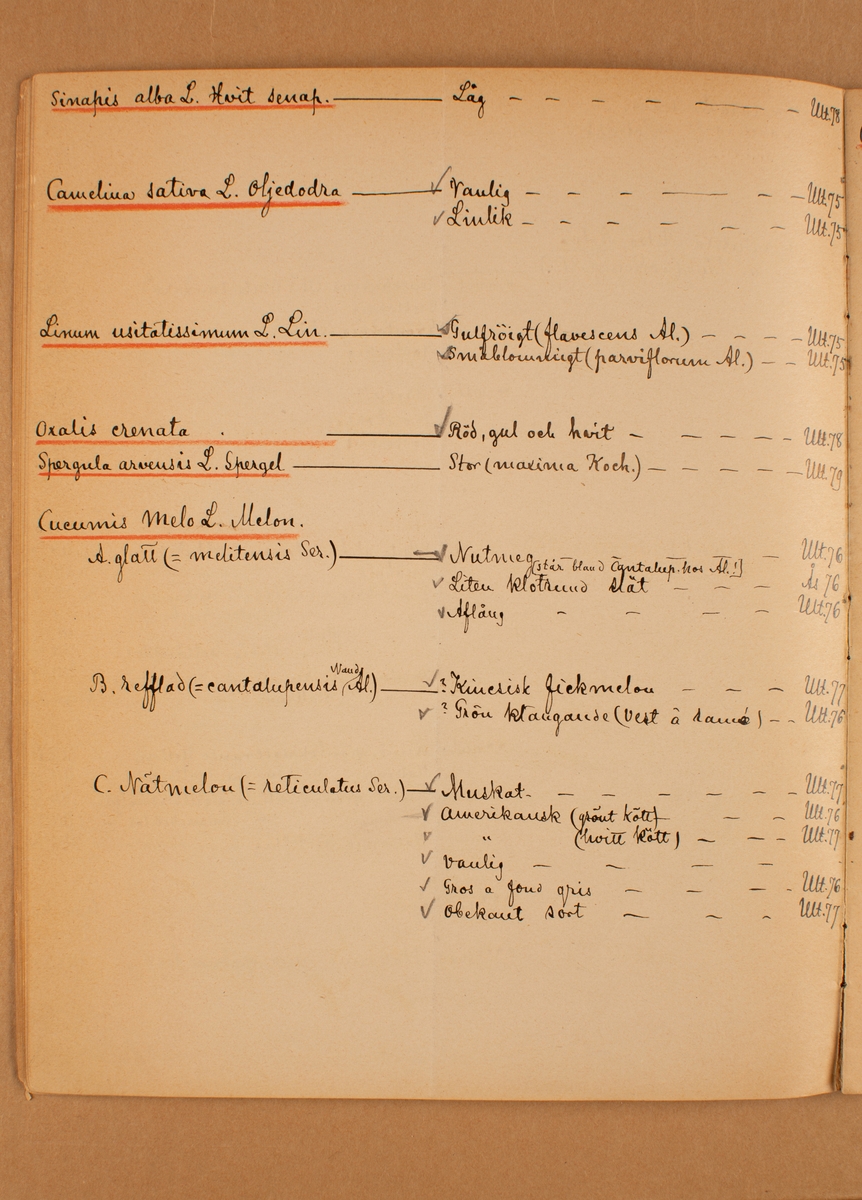 Sinapis alba L. Hvit senap. — Låg - - - - - Ult.78
Camelina sativa L. Oljedodra — ✓ Vanlig - - - - - Ult.75
✓ Linlik - - - - - Ult.75
Linum usitatissimum L. Lin. — ✓ Gulfröigt (flavescens Al.) - - - - Ult.75
✓ Småblommigt (parviflorum Al.) - - Ult.75
Oxalis crenata . — ✓ Röd, gul och hvit - - - - - Ult.78
Spergula arvensis L. Spergel — Stor (maxima Koch.) - - - - - Ult.79
Cucumis Melo L. Melon.
A. glatt (= melitensis Ser.) — ✓ Nutmeg - - - - - Ult.76
[står bland Cantalup. hos Al.!]
✓ Liten klotrund slät - - - Ås 76
✓ Aflång - - - - Ult.76
Naud.
B. refflad (= cantalupensis Al.) — ✓ ? Kinesisk fickmelon - - - Ult.77
✓ ? Grön (Vert à ramé) - - Ult.76
C. Nätmelon (= reticulatus Ser.) — ✓ Muskat - - - - - Ult.77
✓ Amerikansk (grönt kött) - - - Ult.76
✓ " (hvitt kött) - - - Ult.77
✓ Vanlig - - - - -
✓ Gros a fond gris - - - - Ult.76
✓ Obekant sort - - - Ult.77